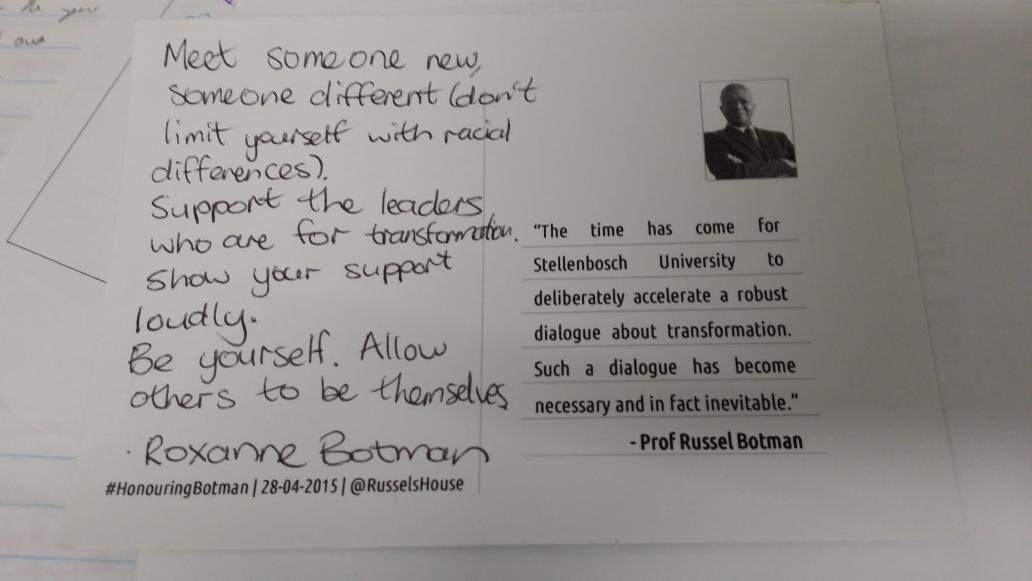 the year
out
Meet someone new,
someone different (don't
limit yourself with racial
differences).
Support the leaders
who are for transformation.
Show your support
loudly.
Be yourself. Allow
others to be themselves
· Roxanne Botman
#HonouringBotman | 28-04-2015 | @RusselsHouse
“The time has come for
Stellenbosch University to
deliberately accelerate a robust
dialogue about transformation.
Such a dialogue has become
necessary and in fact inevitable.”
- Prof Russel Botman